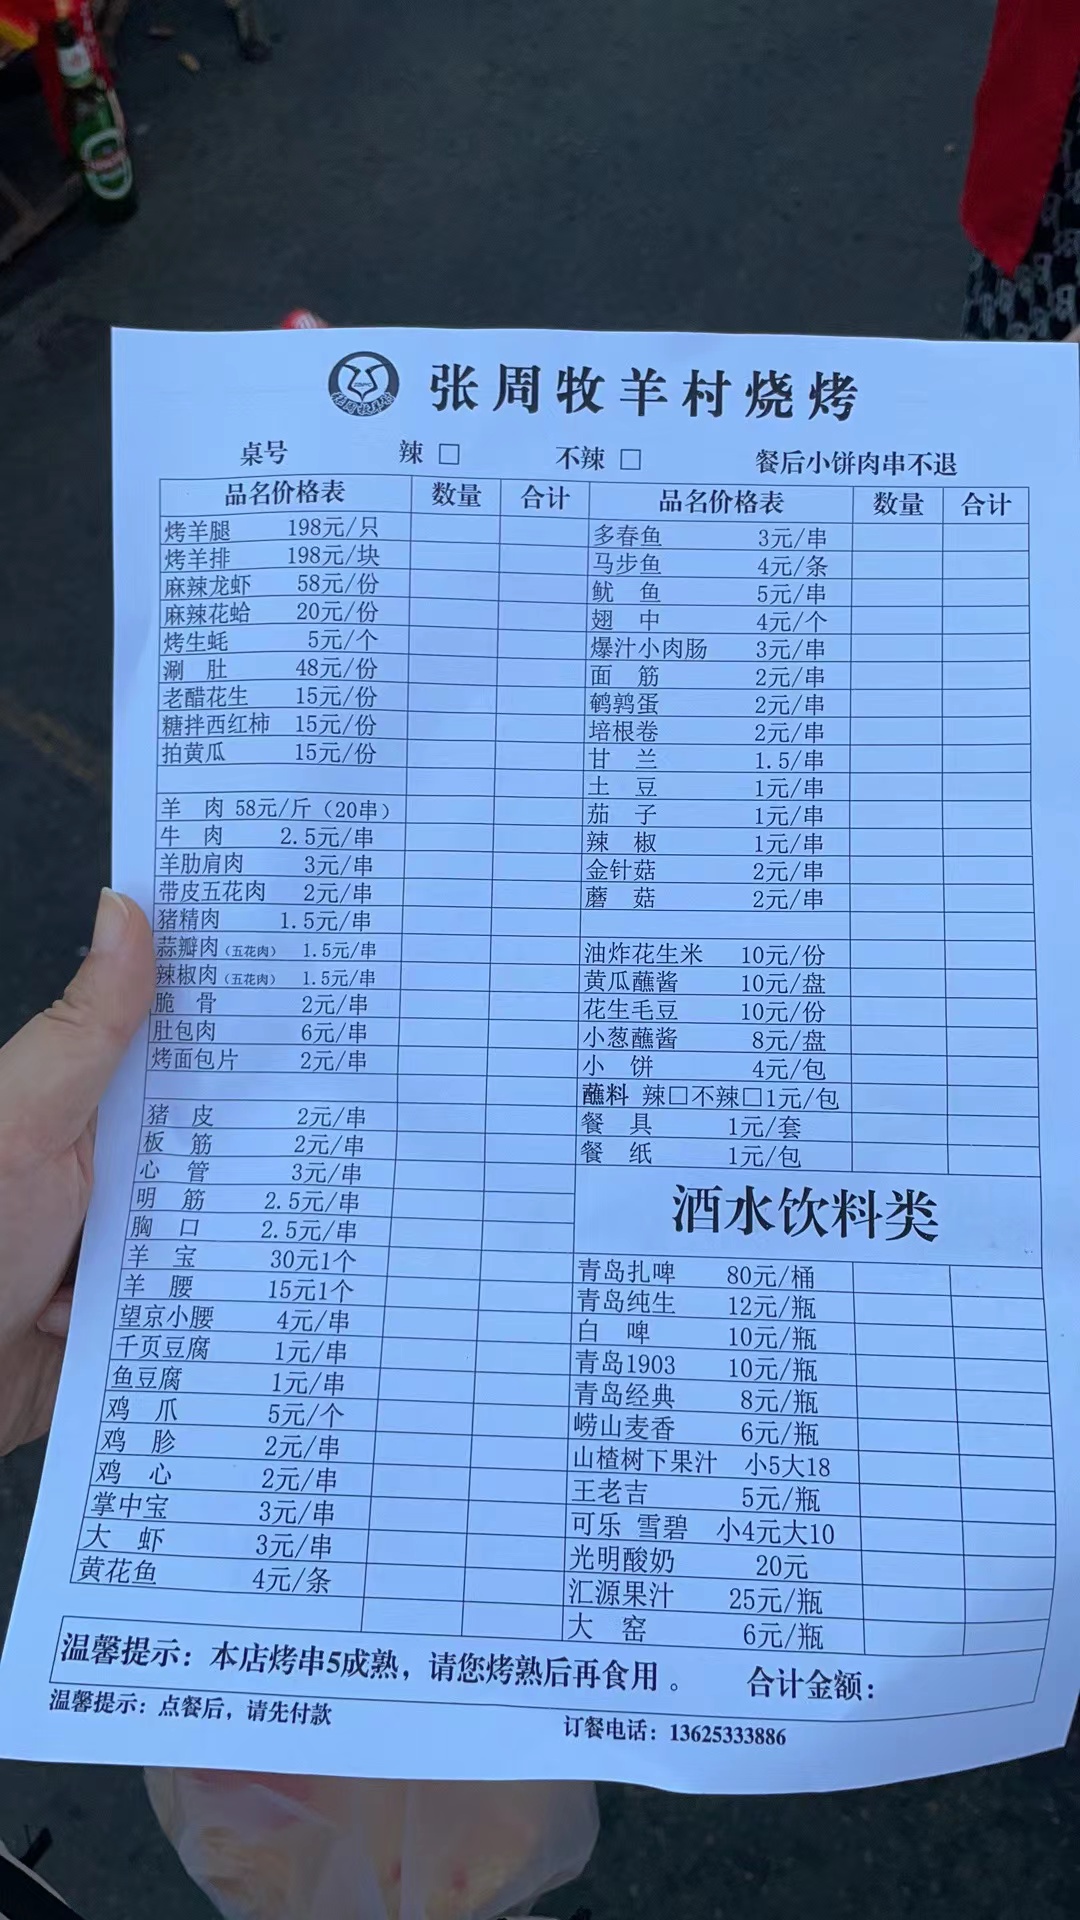 张周牧羊村烧烤
桌号 辣 □ 不辣 □ 餐后小饼肉串不退
品名价格表 数量 合计
烤羊腿 198元/只
烤羊排 198元/块
麻辣龙虾 58元/份
麻辣花蛤 20元/份
烤生蚝 5元/个
涮 肚 48元/份
老醋花生 15元/份
糖拌西红柿 15元/份
拍黄瓜 15元/份
羊 肉 58元/斤（20串）
牛 肉 2.5元/串
羊肋肩肉 3元/串
带皮五花肉 2元/串
猪精肉 1.5元/串
蒜瓣肉（五花肉） 1.5元/串
辣椒肉（五花肉） 1.5元/串
脆 骨 2元/串
肚包肉 6元/串
烤面包片 2元/串
猪 皮 2元/串
板 筋 2元/串
心 管 3元/串
明 筋 2.5元/串
胸 口 2.5元/串
羊 宝 30元1个
羊 腰 15元1个
望京小腰 4元/串
千页豆腐 1元/串
鱼豆腐 1元/串
鸡 爪 5元/个
鸡 胗 2元/串
鸡 心 2元/串
掌中宝 3元/串
大 虾 3元/串
黄花鱼 4元/条
品名价格表 数量 合计
多春鱼 3元/串
马步鱼 4元/条
鱿 鱼 5元/串
翅 中 4元/个
爆汁小肉肠 3元/串
面 筋 2元/串
鹌鹑蛋 2元/串
培根卷 2元/串
甘 兰 1.5/串
土 豆 1元/串
茄 子 1元/串
辣 椒 1元/串
金针菇 2元/串
蘑 菇 2元/串
油炸花生米 10元/份
黄瓜蘸酱 10元/盘
花生毛豆 10元/份
小葱蘸酱 8元/盘
小 饼 4元/包
蘸料 辣□不辣□1元/包
餐 具 1元/套
餐 纸 1元/包
酒水饮料类
青岛扎啤 80元/桶
青岛纯生 12元/瓶
白 啤 10元/瓶
青岛1903 10元/瓶
青岛经典 8元/瓶
崂山麦香 6元/瓶
山楂树下果汁 小5大18
王老吉 5元/瓶
可乐 雪碧 小4元大10
光明酸奶 20元
汇源果汁 25元/瓶
大 窑 6元/瓶
温馨提示：本店烤串5成熟，请您烤熟后再食用 。 合计金额：
温馨提示：点餐后，请先付款 订餐电话：13625333886